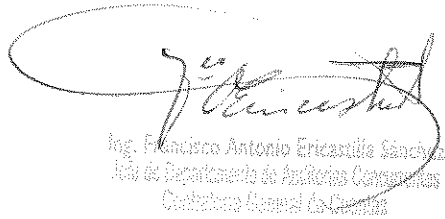 Ing. Francisco Antonio Ericastilla Sánchez
Jefe de Departamento de Auditorías Concurrentes
Contraloría General de Cuentas